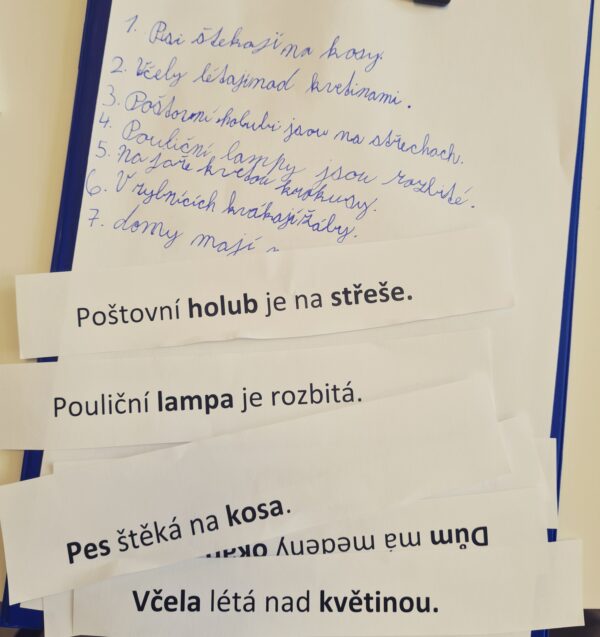 1. Psi štekají na kosy.
2. Včely létají nad kvetinami.
3. Poštovní holubi jsou na střechach.
4. Pouliční lampy jsou rozbité.
5. na jaře kvetou krokusy.
6. V rybnících krákají žáby.
7. domy mají
Poštovní holub je na střeše.
Pouliční lampa je rozbitá.
Pes štěká na kosa.
Dům má měděný
Včela létá nad květinou.